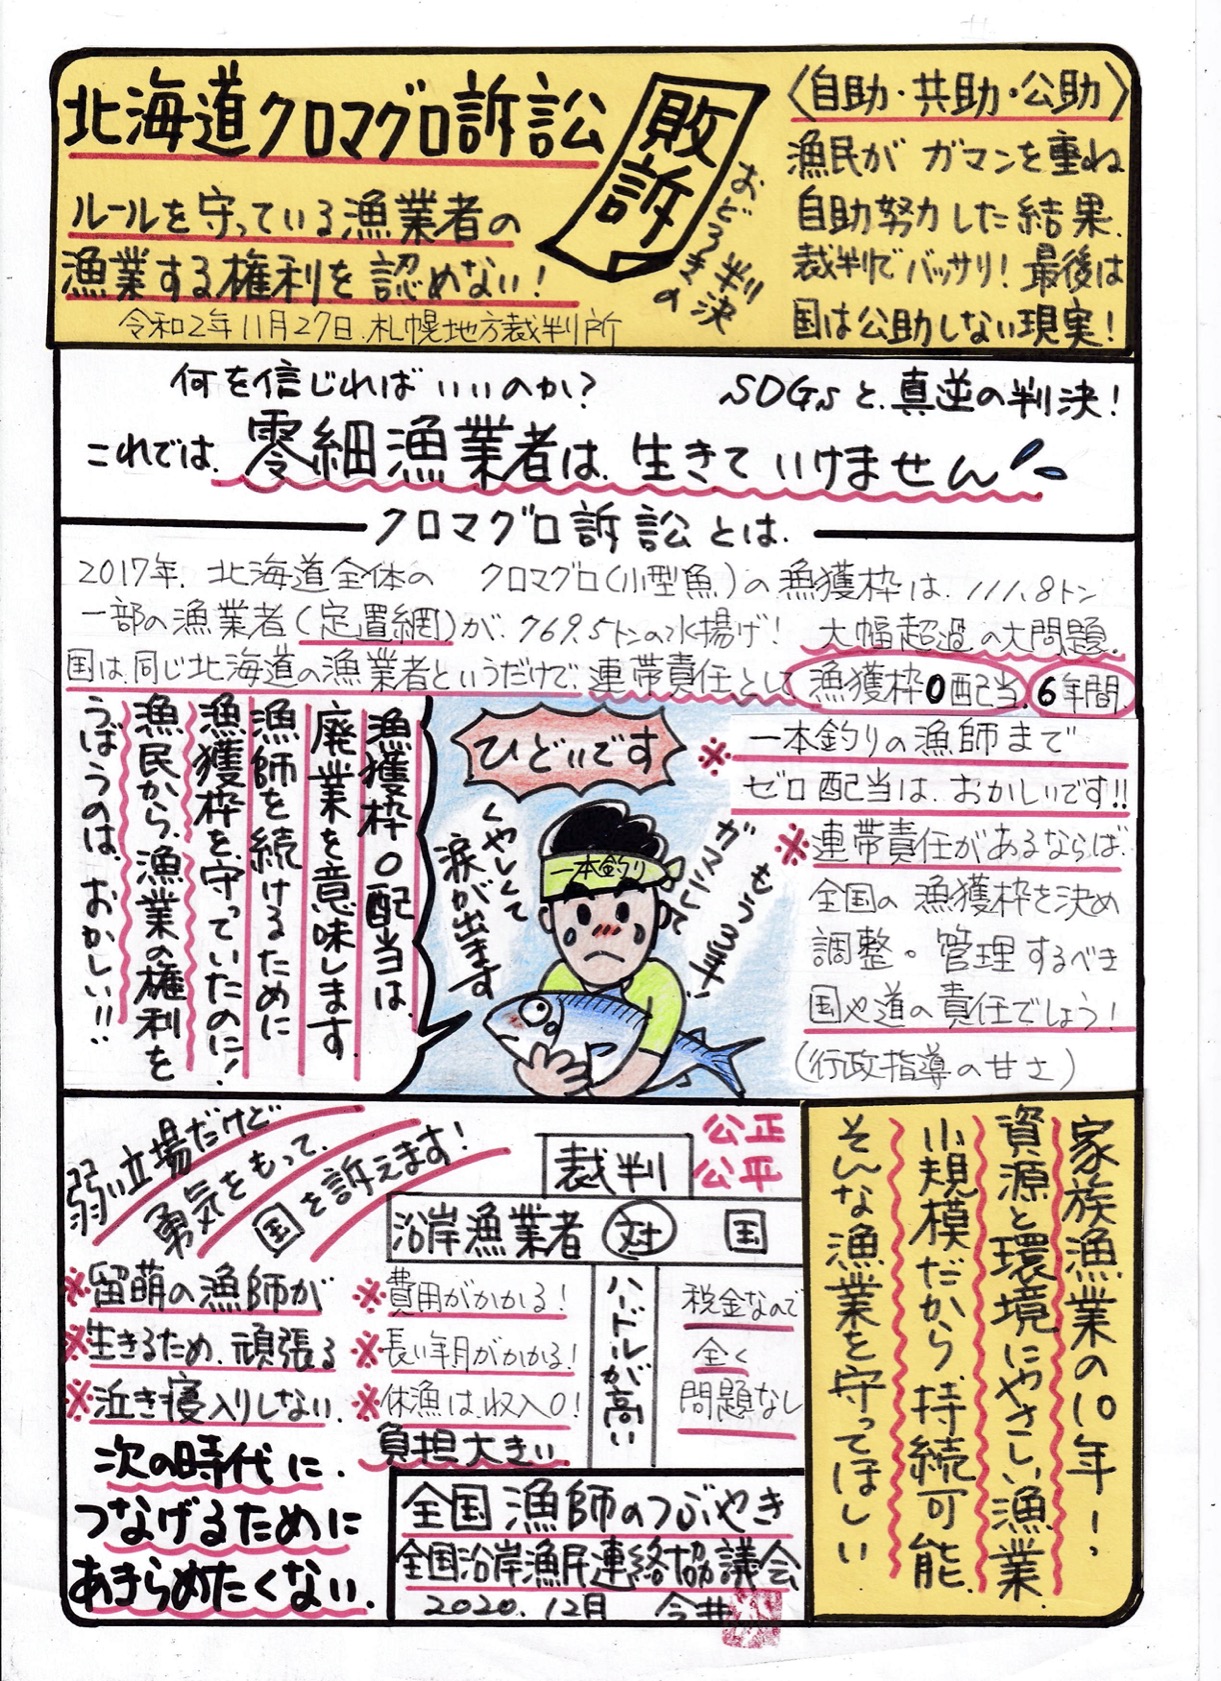 北海道クロマグロ訴訟
敗訴
おどろきの
判決
ルールを守っている漁業者の
漁業する権利を認めない！
令和2年11月27日.札幌地方裁判所
〈自助・共助・公助〉
漁民がガマンを重ね
自助努力した結果.
裁判でバッサリ！最後は
国は公助しない現実！
何を信じればいいのか？
SDGsと.真逆の判決！
これでは.零細漁業者は.生きていけません
クロマグロ訴訟とは.
2017年.北海道全体の クロマグロ(小型魚)の漁獲枠は.111.8トン
一部の漁業者(定置網)が.769.5トンの水揚げ！ 大幅超過の大問題.
国は.同じ北海道の漁業者というだけで.連帯責任として漁獲枠0配当.6年間.
漁獲枠0配当は.
廃業を意味します.
漁師を続けるために
漁獲枠を守っていたのに！
漁民から.漁業の権利を
うばうのは.おかしい!!
ひどいです
くやしくて
涙が出ます
一本釣り
ガマンして
もう3年！
※一本釣りの漁師まで
ゼロ配当は.おかしいです!!
※連帯責任があるならば.
全国の漁獲枠を決め
調整。管理するべき
国や道の責任でしょう！
(行政指導の甘さ)
弱い立場だけど
勇気をもって.
国を訴えます！
※留萌の漁師が
※生きるため.頑張る
※泣き寝入りしない.
次の時代に.
つなげるために
あきらめたくない.
裁判
公正
公平
沿岸漁業者 対 国
※費用がかかる！
※長い年月がかかる！
※休漁は.収入0！
負担大きい
ハードルが高い
税金なので
全く
問題なし
全国漁師のつぶやき
全国沿岸漁民連絡協議会
2020.12月 今井
家族漁業の10年！.
資源と環境にやさしい漁業.
小規模だから.持続可能.
そんな漁業を守ってほしい